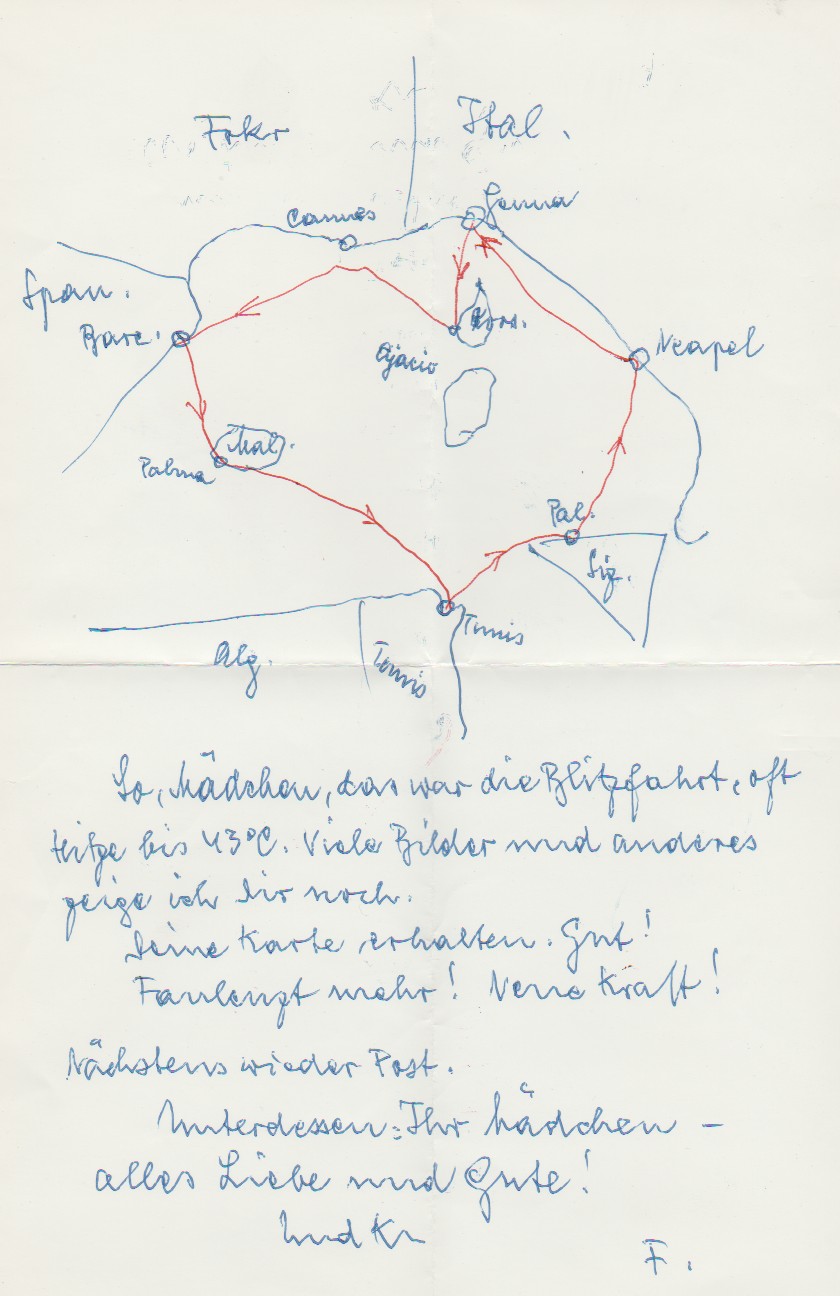 Frkr Ital.
Cannes Genua
Span.
Barc. Kors. Neapel
Ajacio
Mal.
Palma
Pal.
Siz.
Tunis
Alg. Tunis
So, Mädchen, das war die Blitzfahrt, oft
Hitze bis 43°C. Viele Bilder und anderes
zeige ich Dir noch.
Deine Karte erhalten. Gut!
Faulenzt mehr! Neue Kraft!
Nächstens wieder Post.
Unterdessen: Ihr Mädchen –
alles Liebe und Gute!
Und
F.